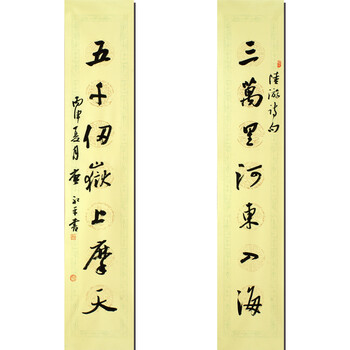 三萬里河東入海
陸游詩句
五千仞嶽上摩天
丙申夏月